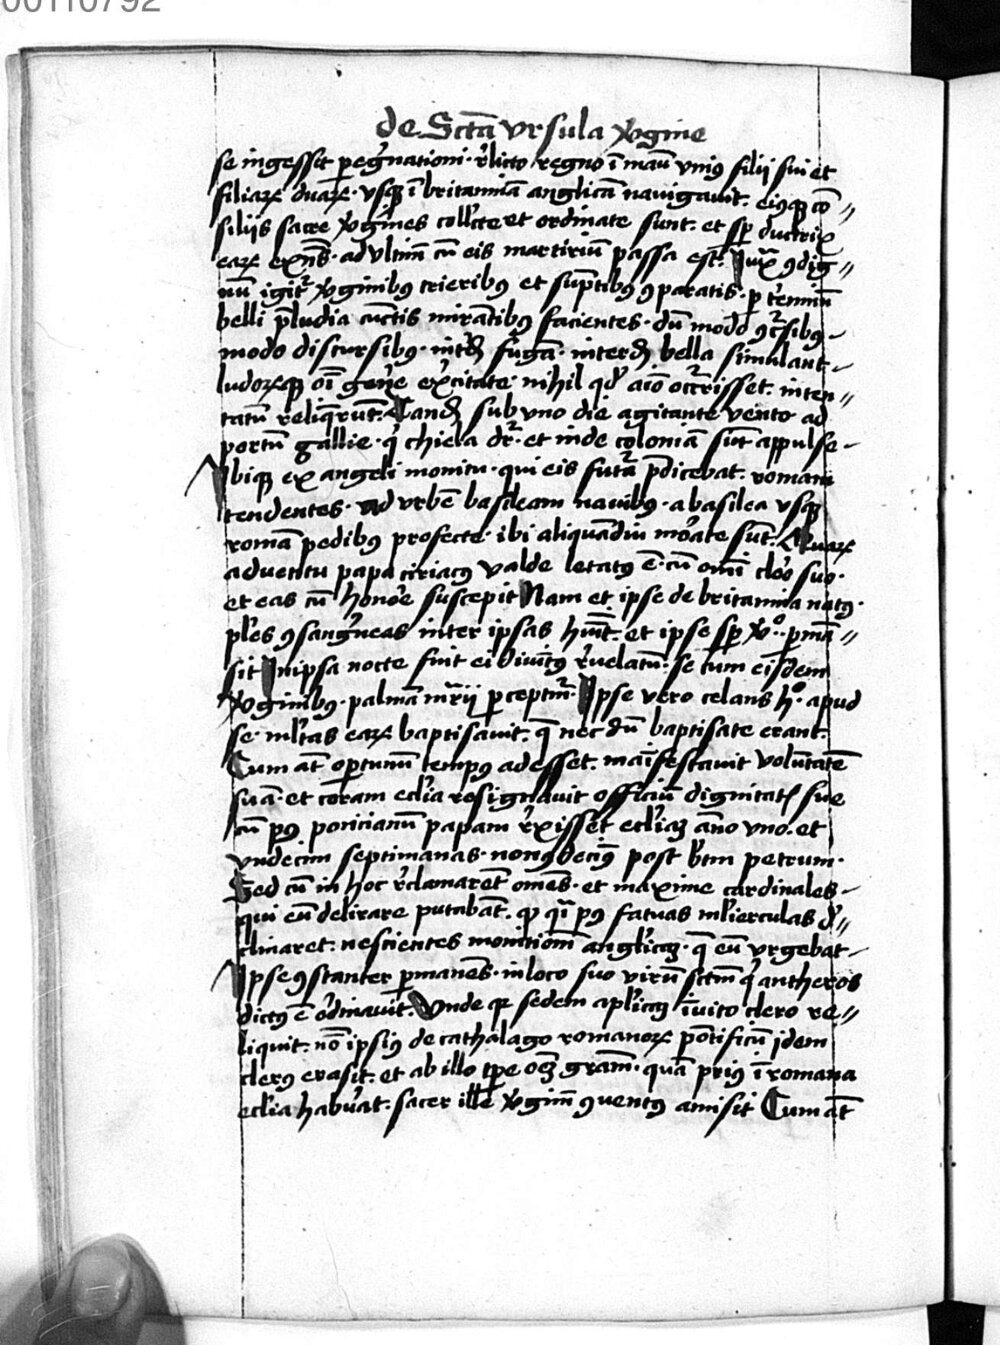 00110792
de Sctā vrsula v̓gine
se ingessit peg̓nationi · r̓licto regno ī manū vniꝰ filij sui et
filiarꝝ duarꝝ · vsqꝫ ī britanniā anglicā nauigauit. eiꝰqꝫ cō〃
siliis sacre v̓gines coll̓cte et ordinate sunt. et sp̄ ductrix
earꝝ exn̄s · ad vltim̄ cū eis martiriū passa est.
nū igit᷑ v̓ginibꝰ trieribꝰ et suptibꝰ ꝯparatis · p t̓rminū
belli p̄ludia cūctis mirātibꝰ facientes · dū modo ꝯc̓sibꝰ -
modo discursibꝰ · int̓dū fugā · interdū bella simulant -
ludorꝝqꝫ oī gen̓e ex̓citate · nihil qd̓ aīo occ̓risset · inten〃
tatū reliq̓runt. Tandē sub vno die agitante vento ad
portū gallie · q̓ chiela dr̄ · et inde coloniā sūt appulse -
Ibiqꝫ ex angeli monitu · qui eis fut᷑a p̄dicebat. romam
tendentes · ad vrbē basileam nauibꝰ · a basilea vsqꝫ
romā pedibꝰ profecte · ibi aliquādiu mor̓ate sūt. Quarꝝ
aduentu papa ciriacꝰ valde letatꝰ ē · cū omī cler̓o suo ·
et eas cū honor̓e suscepit Nam et ipse de britannia natꝰ ·
pl̓es ꝯsang̓neas inter ipsas hūit̄. et ipse sp̄ v̓o · p̱mā〃
sit In ipsa nocte fuit ei diuit̓ꝰ r̓uelatū · se cum eisdem
v̓ginibꝰ · palmā mr̄ij p̱ceptur᷑ · Ipse vero celans h̓ · apud
se · ml̓tas earꝝ baptisauit. q̄ nec dū baptisate erant.
Cum at̄ op̱tunū tempꝰ adesset. maīfestauit volūtatē
suā · et coram ecl̓ia resignauit officiū dignitat̓ sue
cū pꝰ poncianū papam r̓xisset ecl̓iaꝫ āno vno. et
vndecim septimanas · nonꝰdeciꝰ post b̄tm petrum ·
Sed cū in hoc r̓clamarēt omēs · et maxime cardinales -
qui eū delirare putabāt. qꝫ qī pꝰ fatuas ml̓ierculas d̓〃
clinaret · nescientes monitionē angl̓icaꝫ · q̄ eū vrgebat -
Ipse ꝯstanter p̱manēs · in loco suo virū sctm̄ q̓ antheros
dictꝰ ē or̓dinauit. Vnde qꝛ sedem apl̓icaꝫ īuito clero re〃
liquit · nō ipsiꝰ de cathalago romanorꝝ pōtificū jdem
clerꝰ erasit · et ab illo tp̄e oēꝫ gram̄ · quā priꝰ ī romana
ecl̓ia hab̓uat · sacer ille v̓gin̄ ꝯuentꝰ amisit Cum at̄